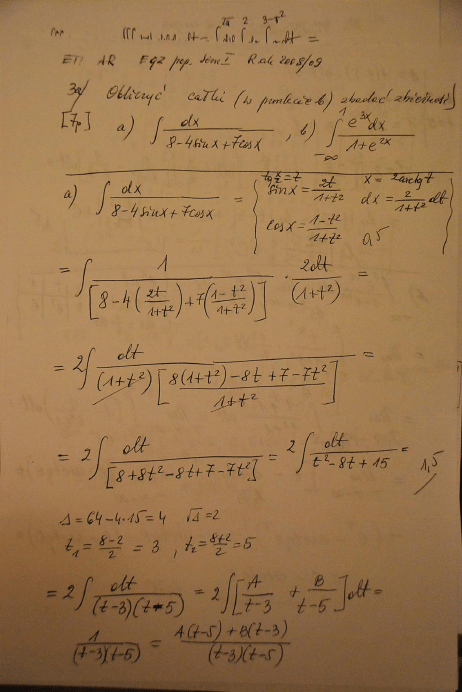 ETI AR Egz pop. Sem I Rok 2008/09
Zad Obliczyć całki (w punkcie b) zbadać zbieżność)
[7p] a) ∫ dx/(8-4sinx+7cosx) , b) ∫_{-∞}^{1} e^{3x}dx/(1+e^{2x})
a) ∫ dx/(8-4sinx+7cosx) = { tg x/2 = t x = 2arctgt
sinx = 2t/(1+t²) dx = 2/(1+t²) dt
cosx = (1-t²)/(1+t²) 0,5
= ∫ 1/[8-4(2t/(1+t²))+7((1-t²)/(1+t²))] · 2dt/(1+t²) =
= 2∫ dt/((1+t²)[(8(1+t²)-8t+7-7t²)/(1+t²)]) =
= 2∫ dt/[8+8t²-8t+7-7t²] = 2∫ dt/(t²-8t+15) = 1,5
Δ = 64-4·15 = 4 √Δ = 2
t₁ = (8-2)/2 = 3 , t₂ = (8+2)/2 = 5
= 2∫ dt/((t-3)(t-5)) = 2∫[A/(t-3) + B/(t-5)]dt =
1/((t-3)(t-5)) = (A(t-5)+B(t-3))/((t-3)(t-5))